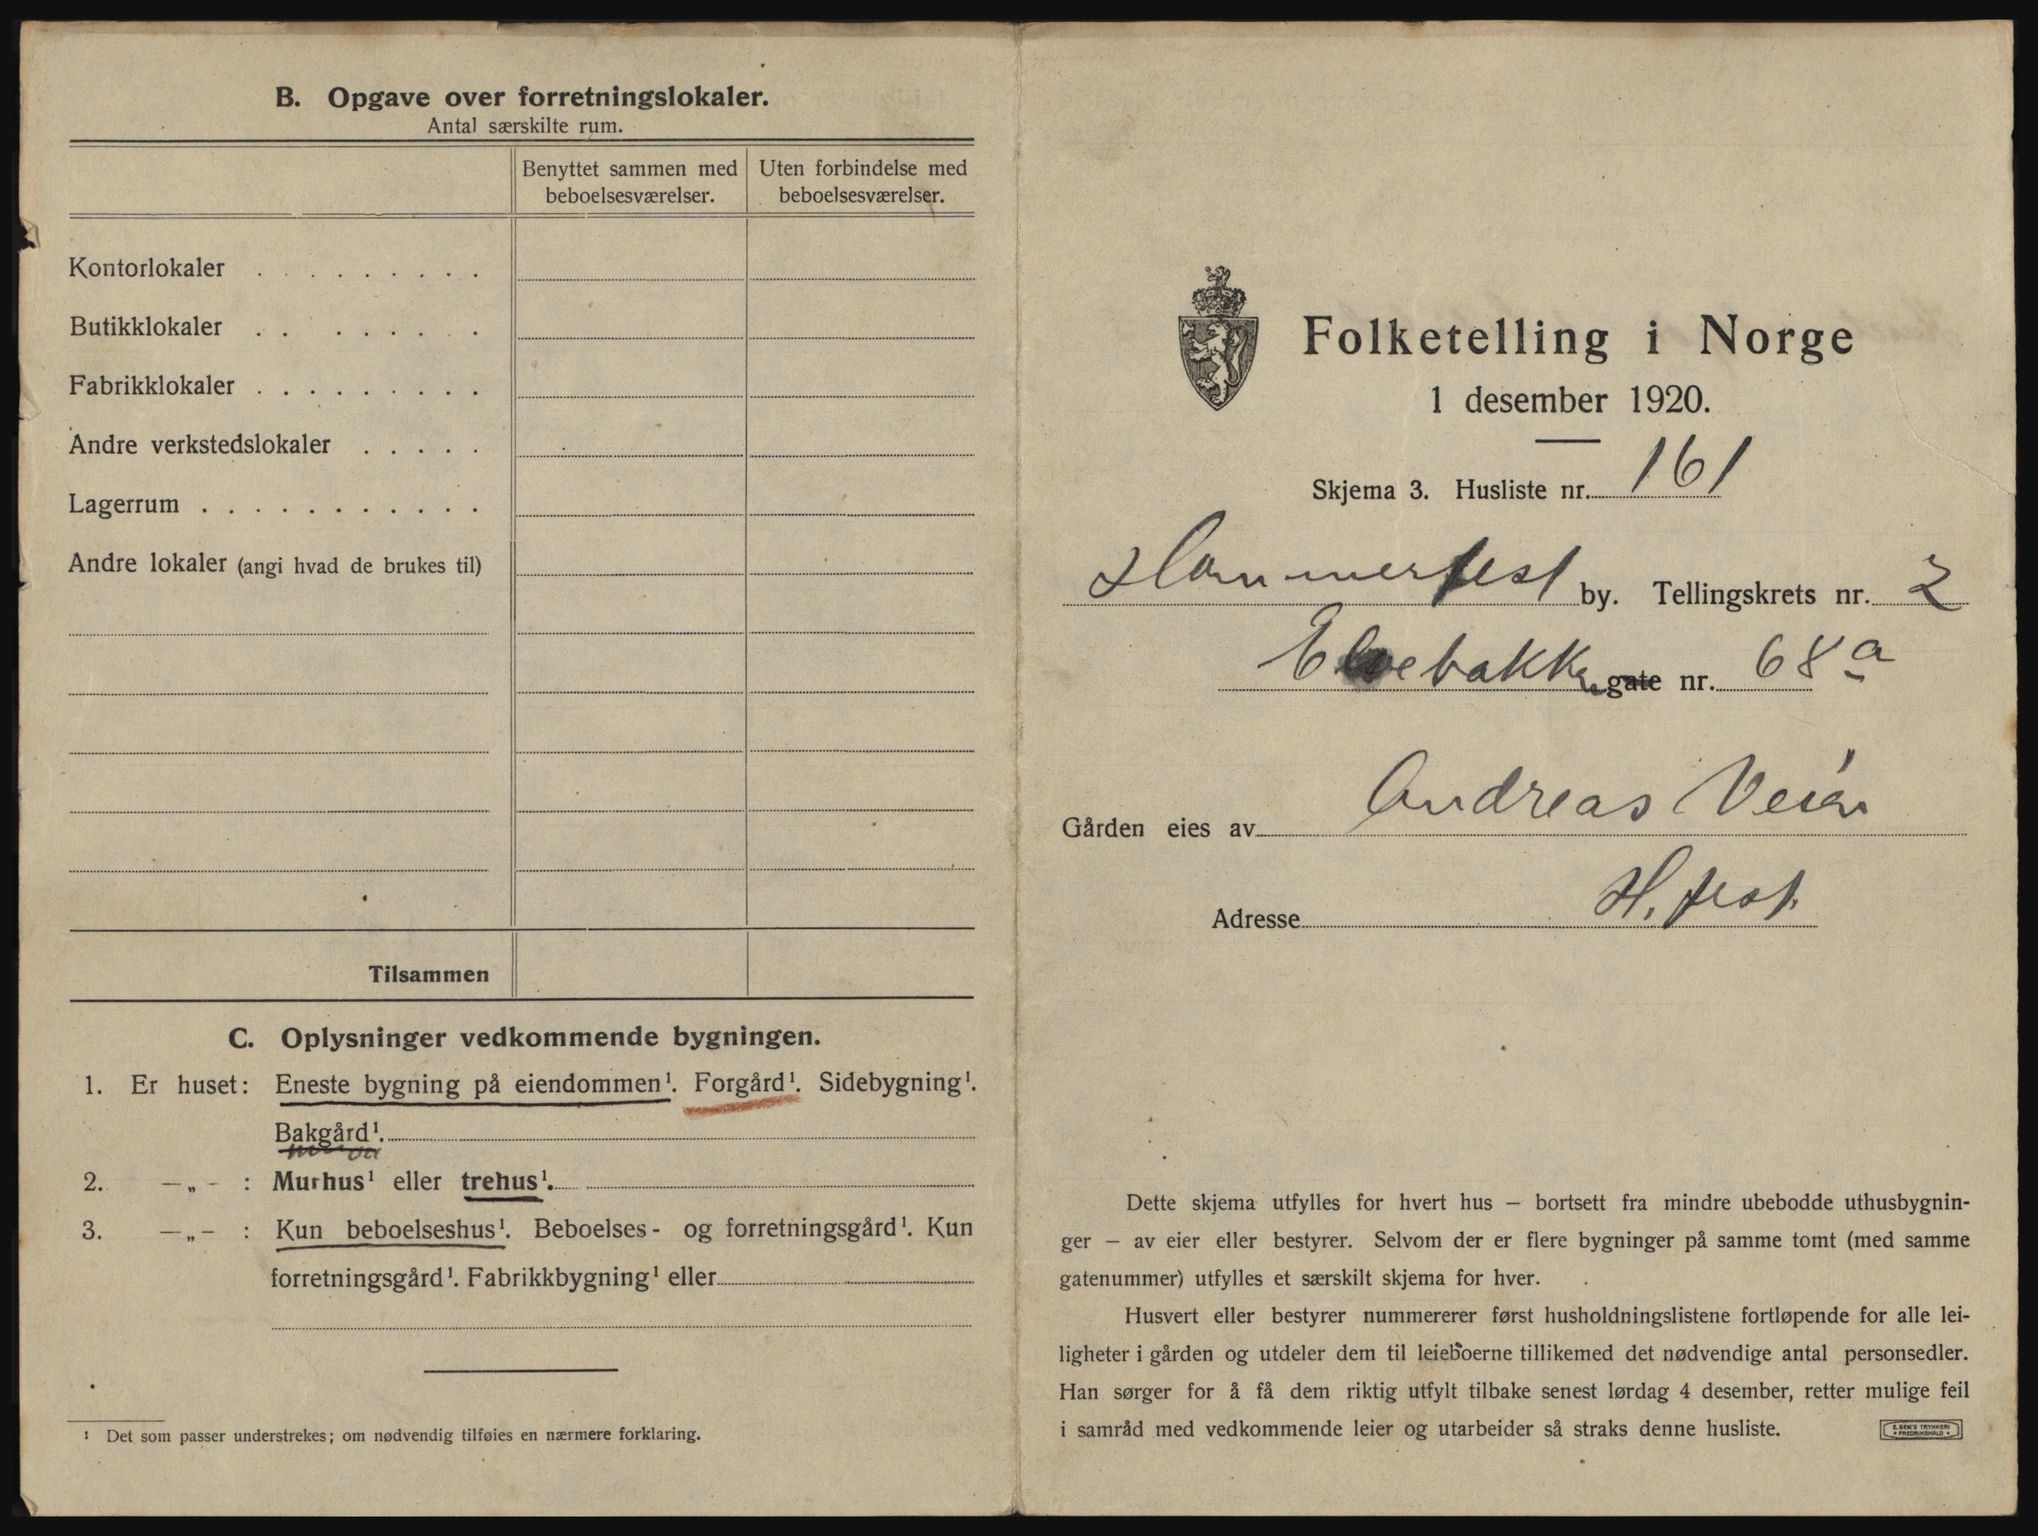 B. Opgave over forretningslokaler.
Antal særskilte rum.
Benyttet sammen med beboelsesværelser.
Uten forbindelse med beboelsesværelser.
Kontorlokaler . . . . . . . . .
Butikklokaler . . . . . . . .
Fabrikklokaler . . . . . . . . .
Andre verkstedslokaler . . . . .
Lagerrum . . . . . . . . . . .
Andre lokaler (angi hvad de brukes til)
Tilsammen
C. Oplysninger vedkommende bygningen.
1. Er huset: Eneste bygning på eiendommen¹. Forgård¹. Sidebygning¹.
Bakgård¹.
2. —„- : Murhus¹ eller trehus¹.
3. —„- : Kun beboelseshus¹. Beboelses- og forretningsgård¹. Kun
forretningsgård¹. Fabrikkbygning¹ eller
¹ Det som passer understrekes; om nødvendig tilføies en nærmere forklaring.
Folketelling i Norge
1 desember 1920.
Skjema 3. Husliste nr. 161
Hammerfest by. Tellingskrets nr. 2
Elvebakken gate nr. 68a
Gården eies av Andreas
Adresse H.fest.
Dette skjema utfylles for hvert hus — bortsett fra mindre ubebodde uthusbygnin-
ger — av eier eller bestyrer. Selvom der er flere bygninger på samme tomt (med samme
gatenummer) utfylles et særskilt skjema for hver.
Husvert eller bestyrer nummererer først husholdningslistene fortløpende for alle lei-
ligheter i gården og utdeler dem til leieboerne tillikemed det nødvendige antal personsedler.
Han sørger for å få dem riktig utfylt tilbake senest lørdag 4 desember, retter mulige feil
i samråd med vedkommende leier og utarbeider så straks denne husliste.
E. SEM'S TRYKKERI
• FREDRIKSHALD •